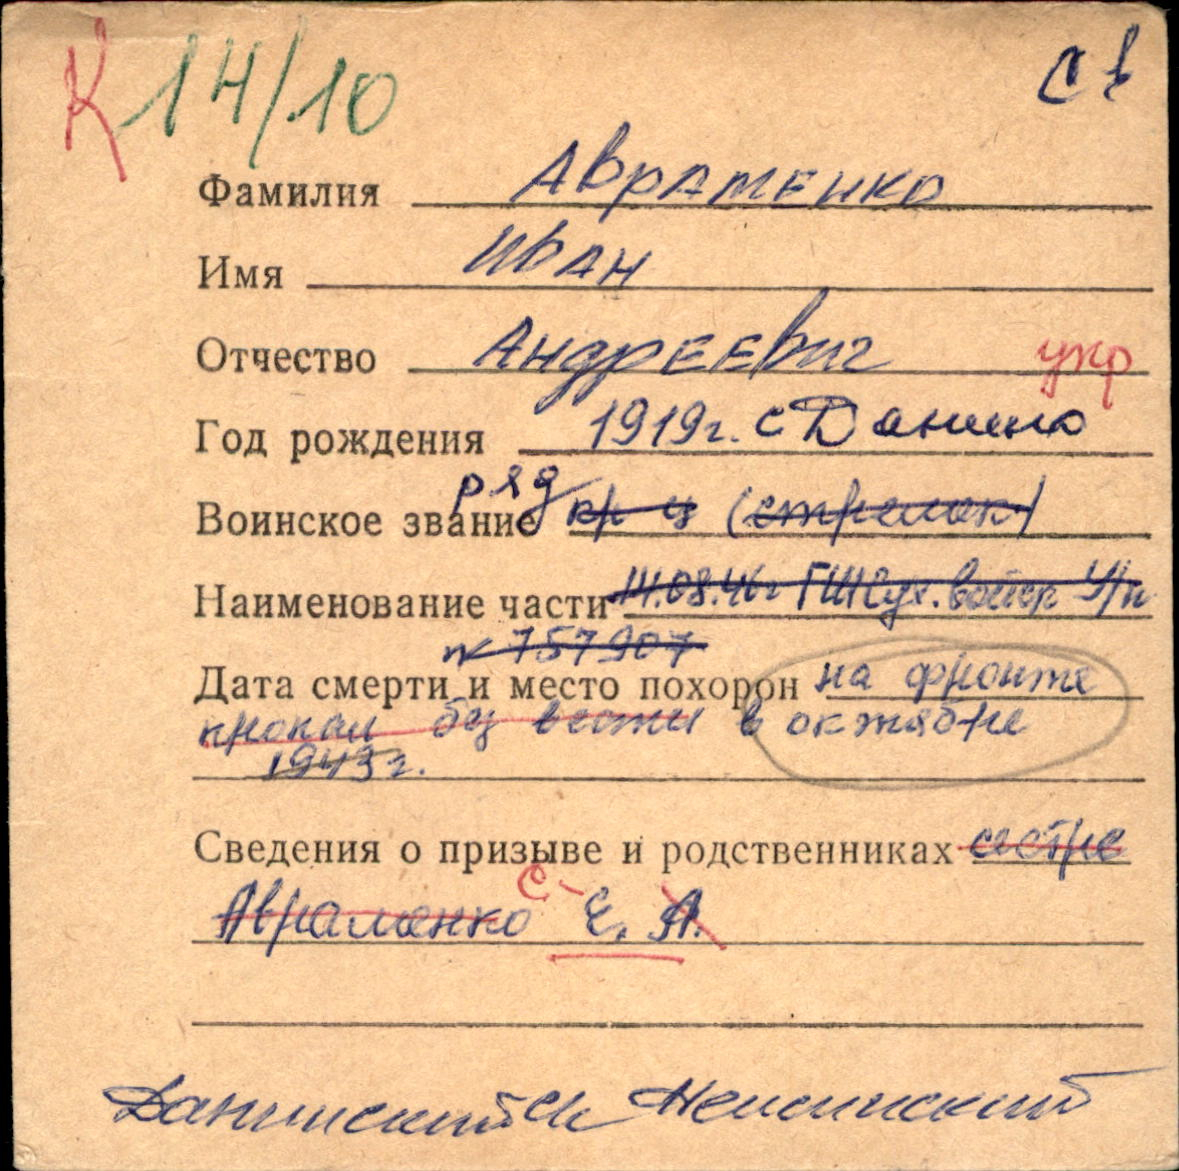 К 14/10
С в
Фамилия Авраменко
Имя Иван
Отчество Андреевич укр
Год рождения 1919г. с Данино
ряд
Воинское звание кр-ц (стрелок)
Наименование части 14.08.46г
№ 757907
Дата смерти и место похорон на фронте
пропал без вести в октябре
1943г.
Сведения о призыве и родственниках сестре
с-
Авраменко Е. А.
Данинский с/с